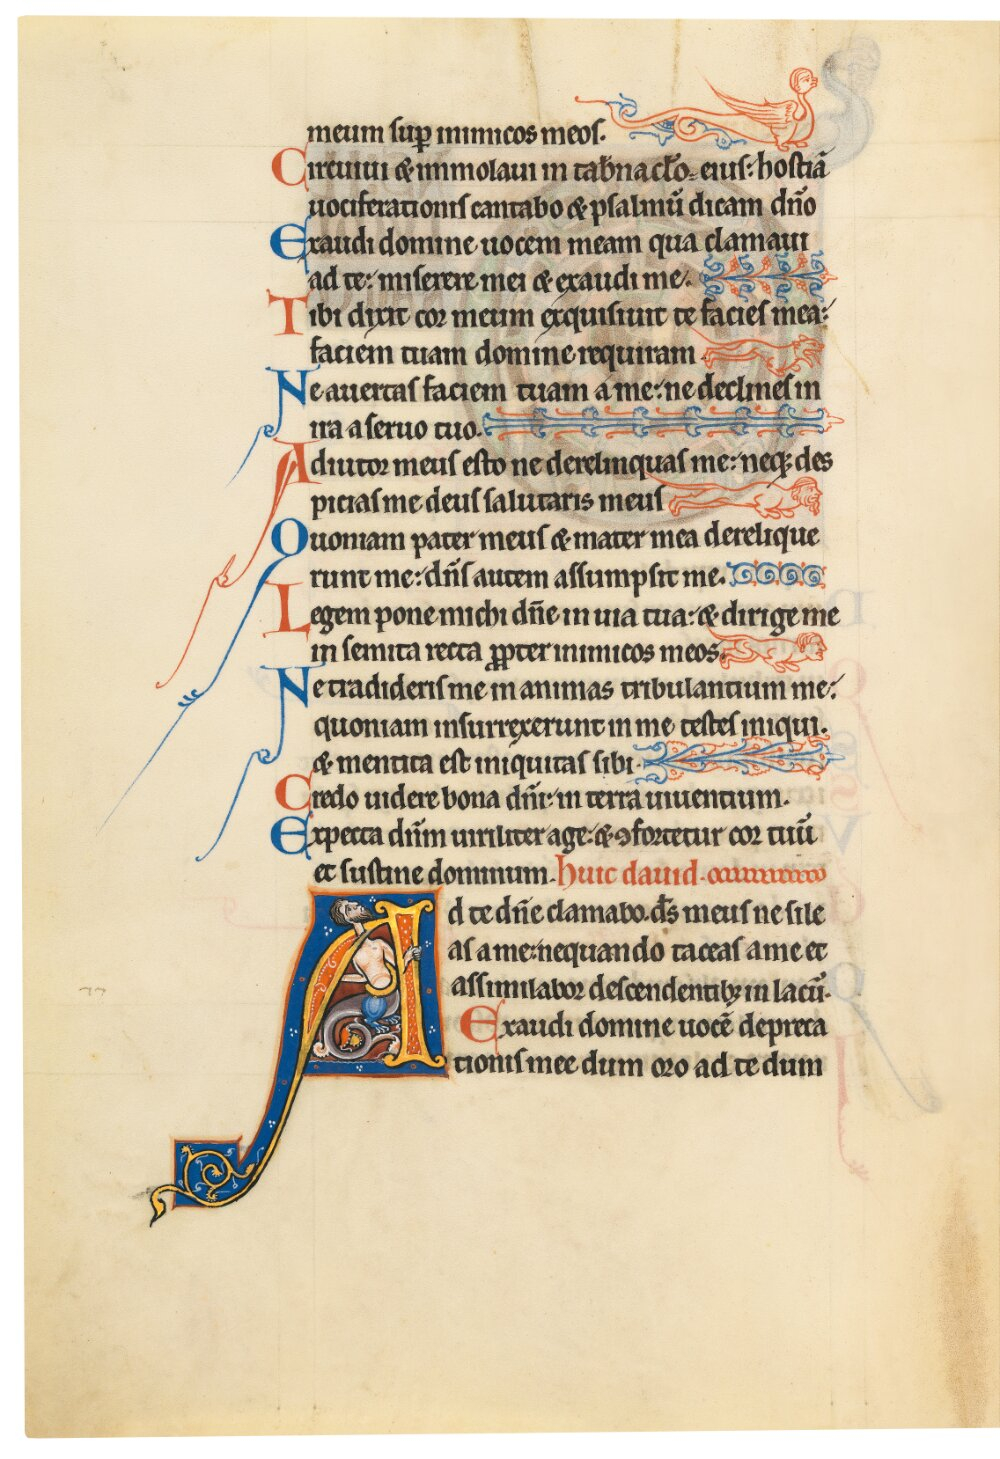 meum sup̱ inimicos meos.
Circuiui & immolaui in tab̄nacl̄o eius: hostiā
uociferationis cantabo & psalmū dicam dn̄o
Exaudi domine uocem meam qua clamaui
ad te: miserere mei & exaudi me.
Tibi dixit cor meum exquisiuit te facies mea:
faciem tuam domine requiram.
Ne auertas faciem tuam a me: ne declines in
ira a seruo tuo.
Adiutor meus esto ne derelinquas me: neq; des
picias me deus salutaris meus
Quoniam pater meus & mater mea derelique
runt me: dn̄s autem assumpsit me.
Legem pone michi dn̄e in uia tua: & dirige me
in semita recta p̱p̱ter inimicos meos.
Ne tradideris me in animas tribulantium me:
quoniam insurrexerunt in me testes iniqui.
& mentita est iniquitas sibi.
Credo uidere bona dn̄i: in terra uiuentium.
Expecta dn̄m uiriliter age: & ꝯfortetur cor tuū
et sustine dominum. huic dauid.
Ad te dn̄e clamabo. ds̄ meus ne sile
as a me: nequando taceas a me et
assimilabor descendentibꝫ in lacū.
Exaudi domine uocē depreca
tionis mee dum oro ad te dum